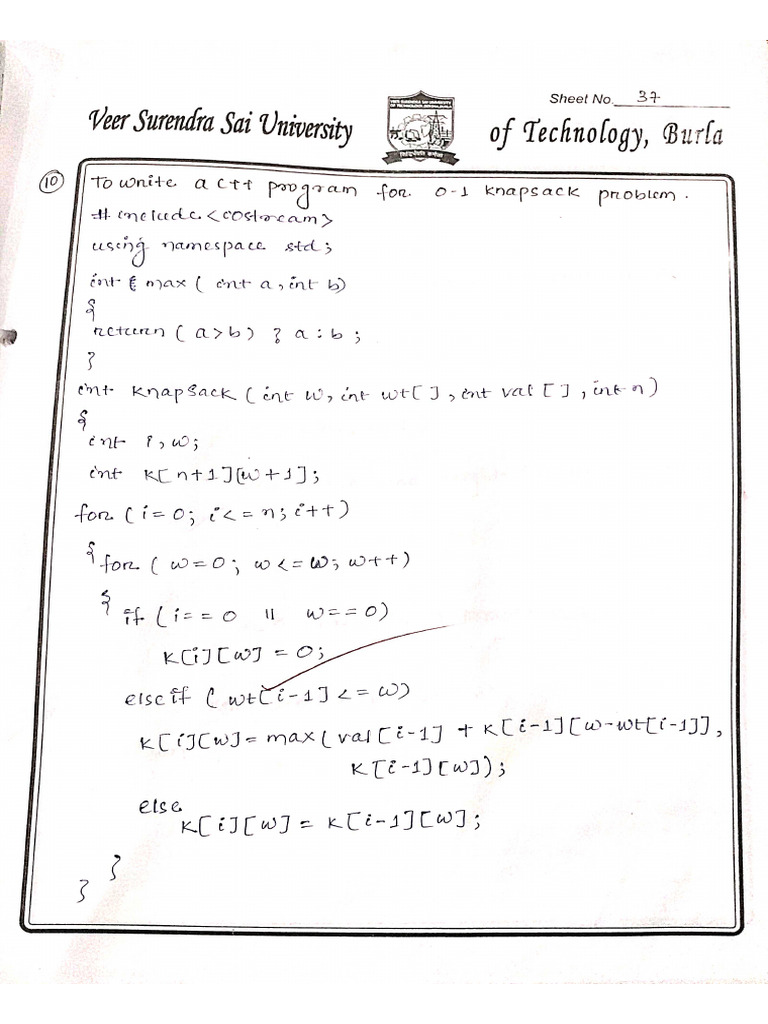 Sheet No. 37
Veer Surendra Sai University of Technology, Burla
10 To write a C++ program for 0-1 knapsack problem.
# include <iostream>
using namespace std;
int max ( int a, int b)
{
return ( a>b) ? a : b ;
}
int knapsack ( int W, int wt[], int val [], int n)
{
int i, w;
int K[n+1][W+1];
for (i=0; i<=n; i++)
{ for ( w=0; w<=W; w++)
{ if (i==0 || w==0)
K[i][w] = 0;
else if ( wt[i-1]<=w)
K[i][w] = max(val[i-1] + K[i-1][w-wt[i-1]],
K[i-1][w]);
else
K[i][w] = K[i-1][w];
}
}